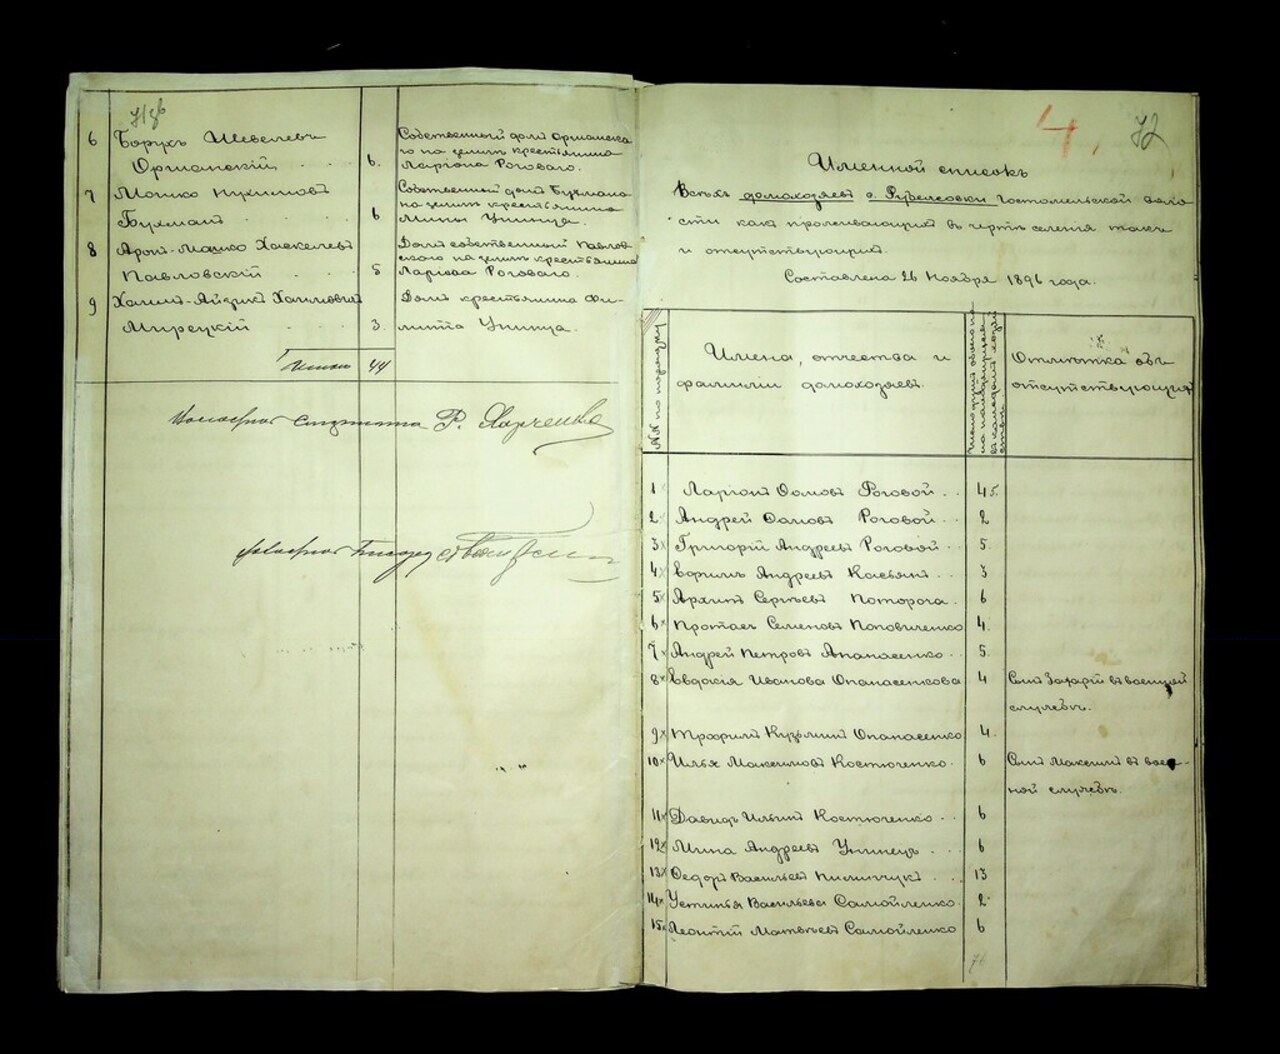 6 Борухъ Шевелевъ
Оршанскій . . . 6. Собственный домъ Оршанска-
го на землѣ крестьянина
Ларіона Роговаго.
7 Мошко Нухимовъ
Бухманъ . . . 6 Собственный домъ Бухмана
на землѣ крестьянина
Мины Унинца.
8 Аронъ-Мошко Хаскелевъ
Павловскій . . 5 Домъ собственный Павлов-
скаго на землѣ крестьянина
Ларіона Роговаго.
9 Хаимъ-Айзикъ Хаимовичъ
Мирецкій . . . 3. Домъ крестьянина Фи-
липа Унинца.
Итого 44
Волостной старшина Р. Харченко
Волостной Писарь
72
Именной списокъ
Всѣхъ домохозяевъ с. Гостомельской воло
сти какъ проживающихъ въ чертѣ селенія такъ
и отсутствующихъ.
Составленъ 26 Ноября 1896 года.
№№ по порядку
Имена, отчества и
фамиліи домохозяевъ.
Отмѣтка объ
отсутствующихъ
1 Ларіонъ Фомовъ Роговой . . 4 5.
2 Андрей Фомовъ Роговой . . 2
3 Григорій Андреевъ Роговой . . 5.
4 Андреевъ Касьянъ . . 3
5 Архипъ Сергѣевъ Поторога . 6
6 Протасъ Семеновъ Поповиченко 4.
7 Андрей Петровъ Апанасенко . . 5.
8 Евдокія Иванова Опанасенкова 4 Сынъ Захарій въ военной
службѣ.
9 Трофимъ Кузьминъ Опанасенко 4.
10 Илья Максимовъ Костюченко . 6 Сынъ Максимъ въ воен-
ной службѣ.
11 Давидъ Ильинъ Костюченко . . 6
12 Мина Андреевъ Унинецъ . . . 6
13 Федоръ Васильевъ Пилипчукъ . . 13
14 Устинья Васильева Самойленко . 2
15 Леонтій Матвѣевъ Самойленко 6